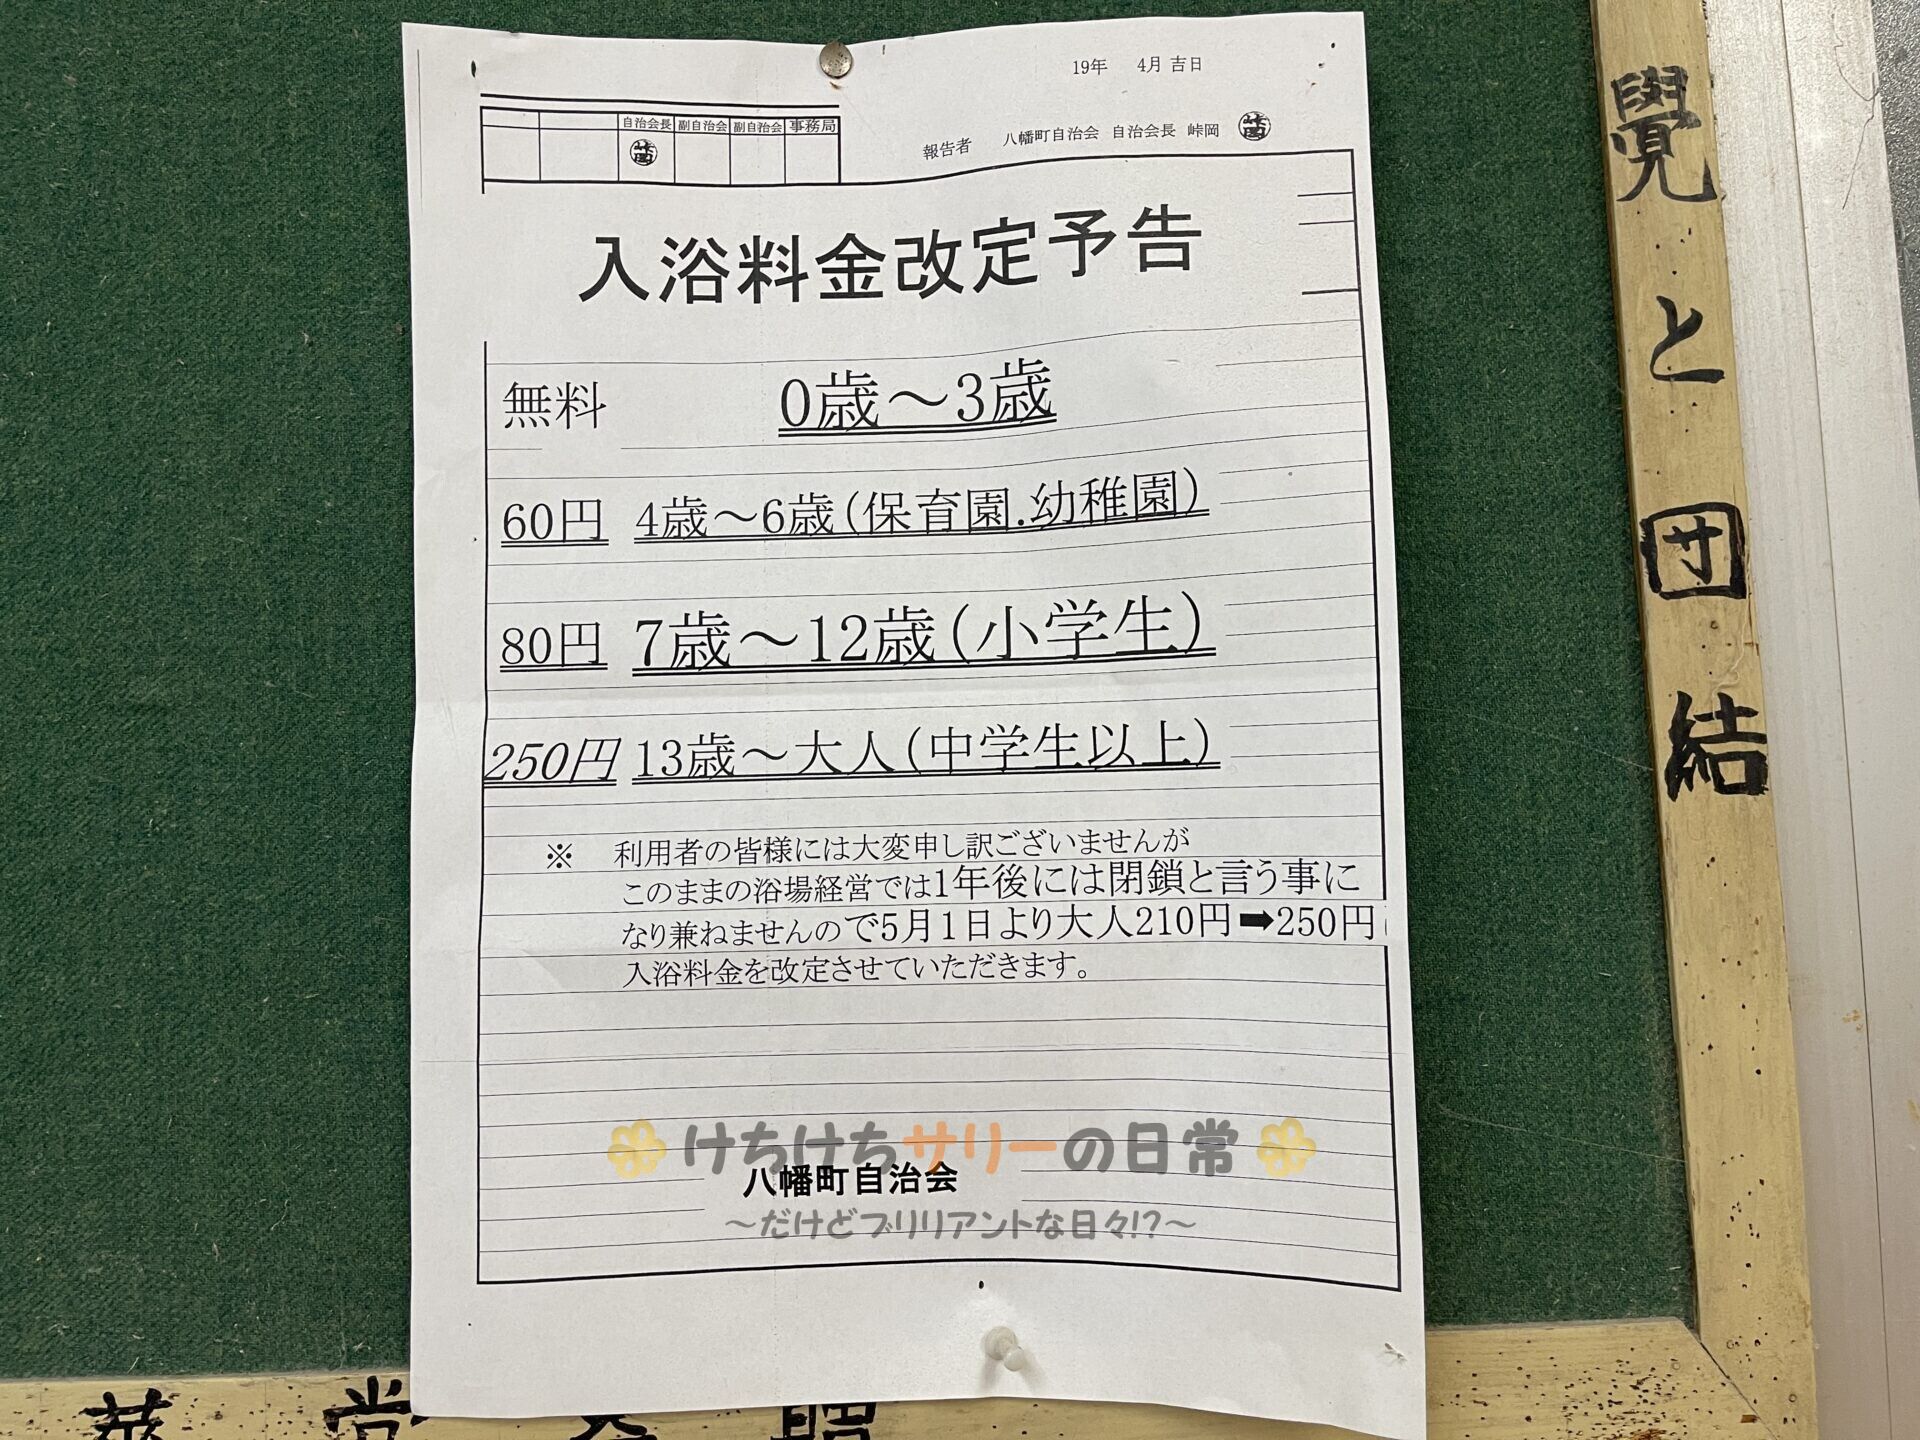 19年 4月 吉日
自治会長 副自治会 副自治会 事務局
報告者 八幡町自治会 自治会長 峠岡
入浴料金改定予告
無料 0歳～3歳
60円 4歳～6歳(保育園.幼稚園)
80円 7歳～12歳(小学生)
250円 13歳～大人(中学生以上)
※ 利用者の皆様には大変申し訳ございませんが
このままの浴場経営では1年後には閉鎖と言う事に
なり兼ねませんので5月1日より大人210円➡250円
入浴料金を改定させていただきます。
けちけちサリーの日常
八幡町自治会
～だけどブリリアントな日々!?～
覺と団結